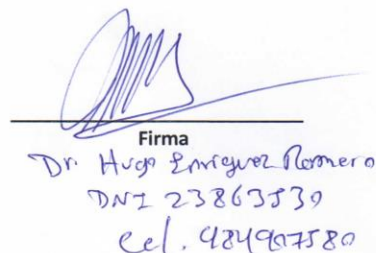 Firma
Dr. Hugo Enriquez Romero
DNI 23863530
Cel. 984907580